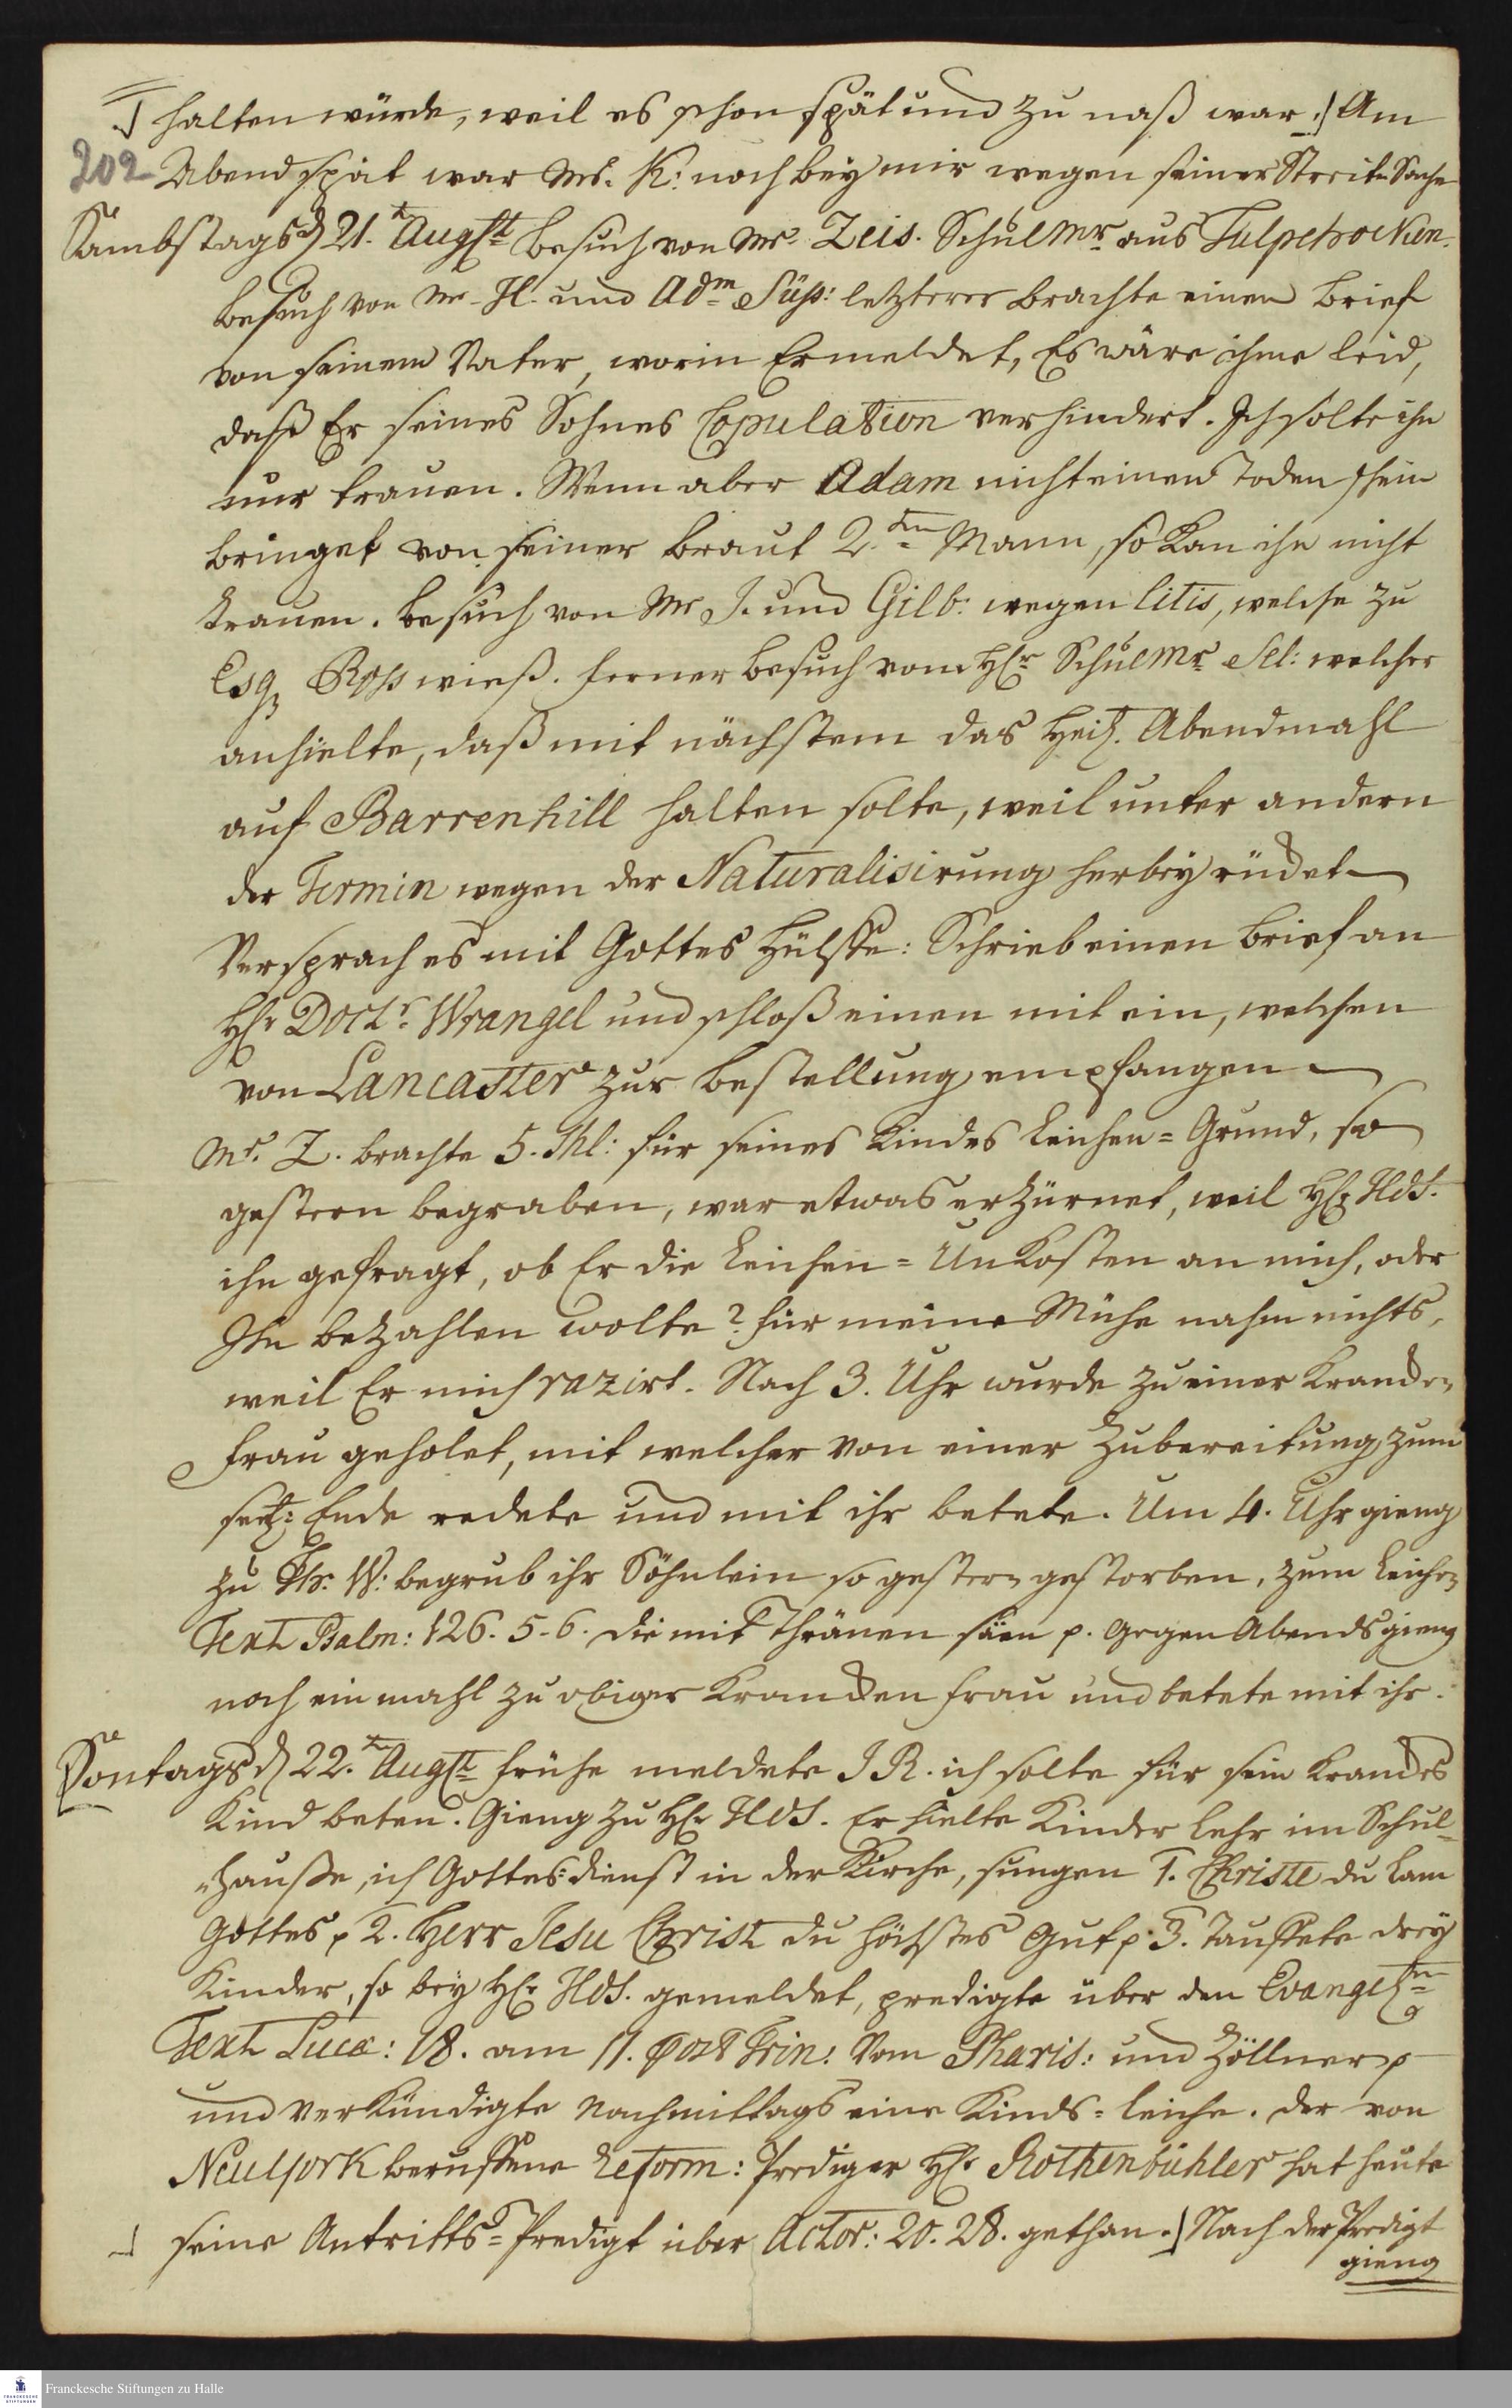 halten würde, weil es schon spät und zu naß war.) Am
202 Abend spät war Mr. K: noch bey mir wegen seiner Streit-Sache
Sambstags d 21.ten Augst Besuch von Mr. Zeis. Schulmr aus Tulpehocken.
besuch von Mr. H. und Adm Süß: letzterer brachte einen Brief
von seinem Vater, worin Er meldet, Es wäre ihme leid,
daß Er seines Sohnes Copulation verhindert. Ich solte ihn
nur trauen. Wenn aber Adam nicht einen Toden schein
bringet von seiner Braut 2.ten Mann, so kan ihn nicht
trauen. besuch von Mr J. und Gilb: wegen litis, welche zu
Esq Ross wieß. ferner besuch vom Hr Schulmr Sel: welcher
anhielte, daß mit nächstem das Heil. Abendmahl
auf Barrenhill halten solte, weil unter andern
der Termin wegen der Naturalisirung herbey rücket
Versprach es mit Gottes Hülffe: Schrieb einen Brief an
Hr Doctr. Wrangel und schloß einen mit ein, welchen
von Lancaster zur bestellung empfangen
Mr. Z. brachte 5. Shl: für seines Kindes Leichen=Grund, so
gestern begraben, war etwas erzürnet, weil Hr Hds.
ihn gefragt, ob Er die Leichen=Unkosten an mich, oder
Ihn bezahlen wolte? für meine Mühe nahm nichts,
weil Er mich razirt. Nach 3. Uhr wurde zu einer Krancken
Frau geholet, mit welcher von einer Zubereitung zum
seel: Ende redete und mit ihr betete. Um 4. Uhr gieng
zu Fr. W: begrub ihr Söhnlein so gestern gestorben, zum Leichen
Text Psalm: 126. 5-6. die mit Thränen säen p. Gegen Abends gieng
noch ein mahl zu obiger Krancken Frau und betete mit ihr.
Sontags d 22.ten Augst frühe meldete J R. ich solte für sein Kranckes
Kind beten. Gieng zu Hr Hds. Er hielte Kinder Lehr im Schul=
Hauße, ich Gottesdienst in der Kirche, sungen 1. Christe du Lam
Gottes p 2. Herr Jesu Christ du höchstes Gut p. 3. Tauffete drey
Kinder, so bey Hr Hds. gemeldet, predigte über den Evangel.n
Text Lucæ: 18. am 11. post Trin: Vom Pharis: und Zöllner p
und verkündigte nachmittags eine Kinds=leiche. der von
Neuyork beruffene Reform: Prediger Hr Rothenbühler hat heute
seine Antritts=Predigt über Actor: 20. 28. gethan.) Nach der Predigt
gieng
Franckesche Stiftungen zu Halle